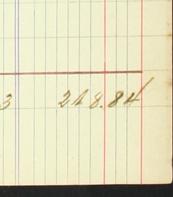 3 248.84